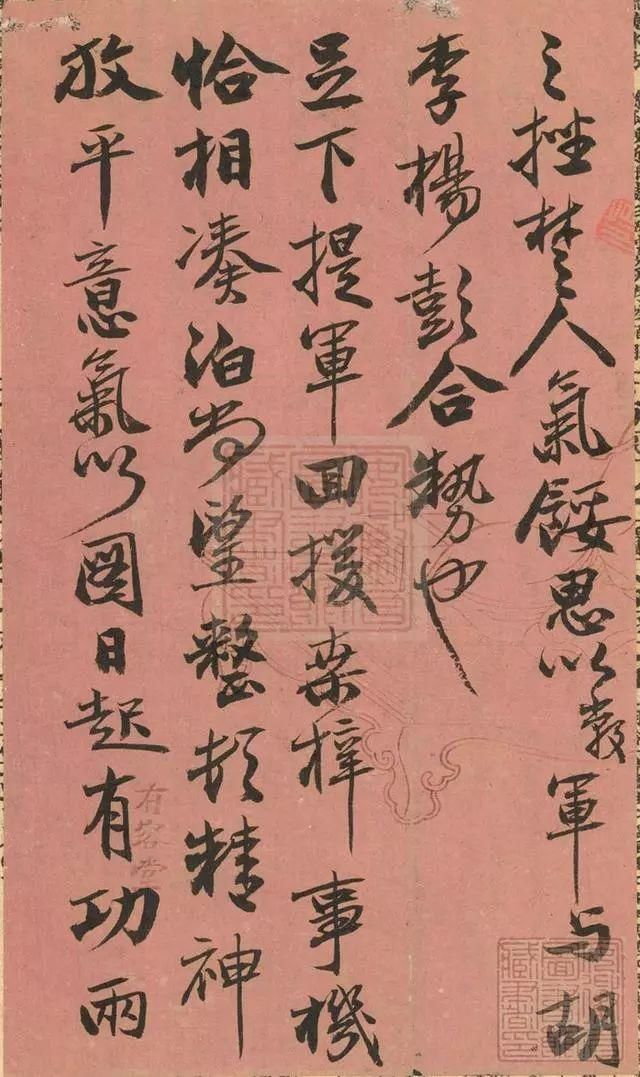 之挫楚人氣餒思以敝軍与胡
李楊彭合勢也
足下提軍回援桒梓事機
恰相湊泊尚望整頓精神
放平意氣以圖日起有功兩
有容堂